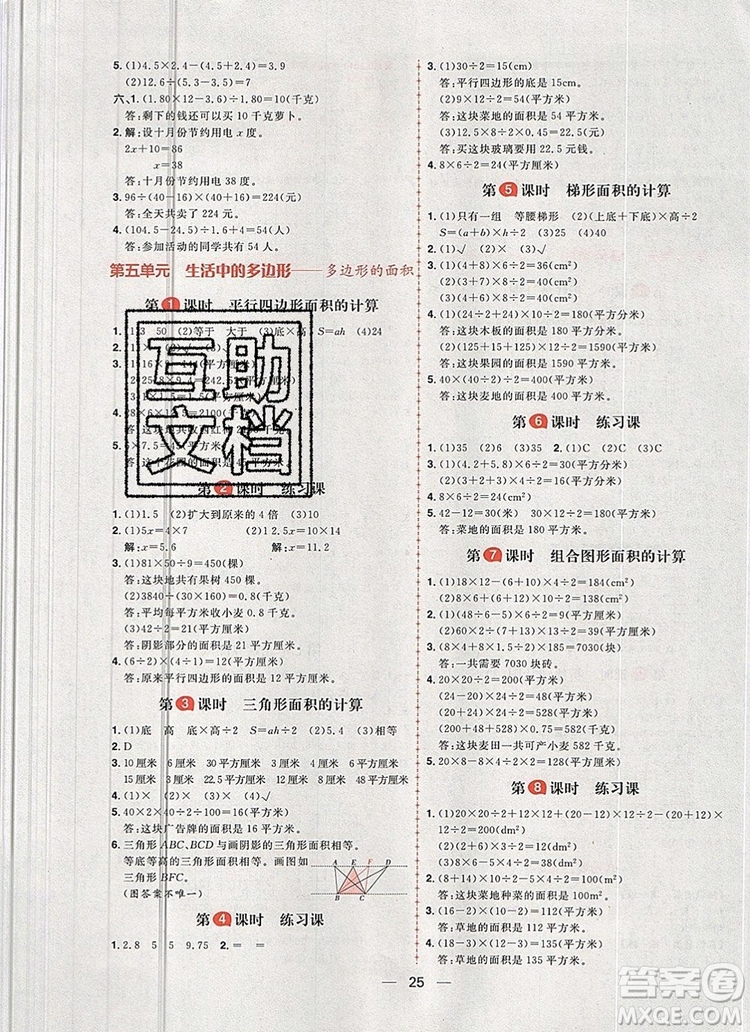 5. (1)4.5×2.4-(4.5+2.4)=3.9
(2)12.6÷(1.5+0.3)=7
六、1. (1.80×12-3.6)÷1.80=10(千克)
答:剩下的钱还可以买 10 千克萝卜。
2. 解:设十月份节约用电 x 度。
2x+10=86
x=38
答:十月份节约用电 38 度。
3. 96÷(40÷20)×(40+16)÷12=224(元)
答:全天共卖了 224 元。
4. (104.5-24.5)÷1.6+4=54(名)
答:参加活动的同学共有 54 名。
第五单元 生活中的多边形——多边形的面积
第1课时 平行四边形面积的计算
50 (2)等于 大于 (3)底×高 S=ah (4)24
(平方厘米)
答:这块
第2课时 练习课
1. (1)1.5 (2)扩大到原来的 4 倍 (3)10
2. (1)5x=4×7 (2)12.5x=10×14
解:x=5.6 解:x=11.2
3. (1)81×50÷9=450(棵)
答:这块地共有果树 450 棵。
(2)3840÷(60×80)=0.8(千克)
答:平均每平方米收小麦 0.8 千克。
(3)42÷2=21(平方厘米)
答:阴影部分的面积是 21 平方厘米。
4. (6÷2)×(4÷1)=12(平方厘米)
答:原来平行四边形的面积是 12 平方厘米。
第3课时 三角形面积的计算
1. (1)底 高 底×高÷2 S=ah÷2 (2)5.4 (3)相等
2. D
3. 10 厘米 6 厘米 30 平方厘米 9 厘米 6 厘米 27 平方厘米
15 厘米 5 厘米 38 平方厘米 12 厘米 4 厘米 24 平方厘米
4. (1)× (2)× (3)× (4)√
5. 40×2×40×2÷2÷200=16(平方米)
答:这块广告牌的面积是 16 平方米。
6. 三角形 ABC、BCD 与画阴影三角形面积相等。
等底等高的三角形面积相等。画图如
三角形 BFC。
(图答案不唯一)
A E F D
B C
第4课时 练习课
1. 2.8 5 5 9.75 2. = =
3. (1)30÷2=15(cm)
答:平行四边形的底是 15cm。
(2)9×12÷2=54(平方米)
答:这块菜地的面积是 54 平方米。
(3)12.5×(2×0.9)=22.5(元)
答:买这块玻璃要用 22.5 元钱。
4. 8×6÷2=24(平方厘米)
第5课时 梯形面积的计算
1. (1)只有一组 等腰梯形 (2)(上底+下底)×高÷2
S=(a+b)×h÷2 (3)22.5 (4)40
2. (1)× (2)× (3)√ (4)√
3. (1)(24+12)×10÷2=180(平方分米)
答:这块木板的面积是 180 平方分米。
(2)(125+15+125)×12÷2=1590(平方米)
答:这块果园的面积是 1590 平方米。
4. 40×(40÷2)÷2=400(平方米)
答:这块麦地的面积是 400 平方米。
第6课时 练习课
1. (1)35 (2)6 (3)35 2. (1)C (2)B (3)C
3. (1)(4+8)×3÷2=18(cm²)
(2)(7+11)×5÷2=45(cm²)
4. 8×6÷2=24(平方厘米)
5. 42-12=30(米) 30×12÷2=180(平方米)
答:菜地的面积是 180 平方米。
第7课时 组合图形面积的计算
1. (1)18×12-(6+10)×4÷2=184(cm²)
(2)8×6+(6+10)×4÷2=80(cm²)
2. (1)(48-6)×5÷2=105(平方厘米)
(2)60×30-10×20÷2=1700(平方厘米)
3. (8×4+8×4÷2)÷(8×8)=7030(块)
答:一共需要 7030 块砖。
4. (1)20×20+16×16÷2=528(平方米)
(2)(20+24)×24÷2=528(平方米)
(3)24×24-(24-20)×24÷2=528(平方米)
(200+4×24+20×24÷2)×0.75=402(千克)
答:这块麦田一共可产小麦 402 千克。
5. 20×20-20×20÷2=200(平方厘米)
第8课时 练习课
1. (1)20×20÷2+12×12-(20+12)×12÷2-(20-12)×
12÷2=104(dm²)
(2)(2+6)×2÷2=8(dm²)
(3)6×6-(3+6)×3÷2=22.5(dm²)
2. (8+12)×8÷2-8×2=64(平方米)
答:这块菜地种菜的面积是 64 平方米。
3. (16-2)×(10-2)=112(平方米)
答:草地的面积是 112 平方米。
4. (18-3)×(12-3)=135(平方米)
答:草地的面积是 135 平方米。
25
互助
文档
答案圈
MXQE.COM